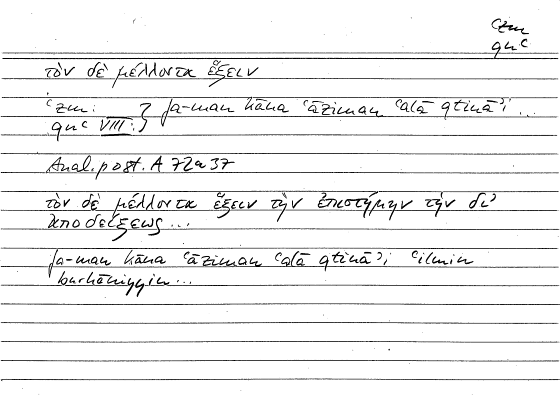 ʿzm
qnʿ
τὸν δὲ μέλλοντα ἕξειν
ʿzm: } fa-man kāna ʿāziman ʿalā qtināʾi ...
qnʿ VIII:
Anal. post. A 72a37
τὸν δὲ μέλλοντα ἕξειν τὴν ἐπιστήμην τὴν δι'
ἀποδείξεως ...
fa-man kāna ʿāziman ʿalā qtināʾi ʿilmin
burhānīyin ...